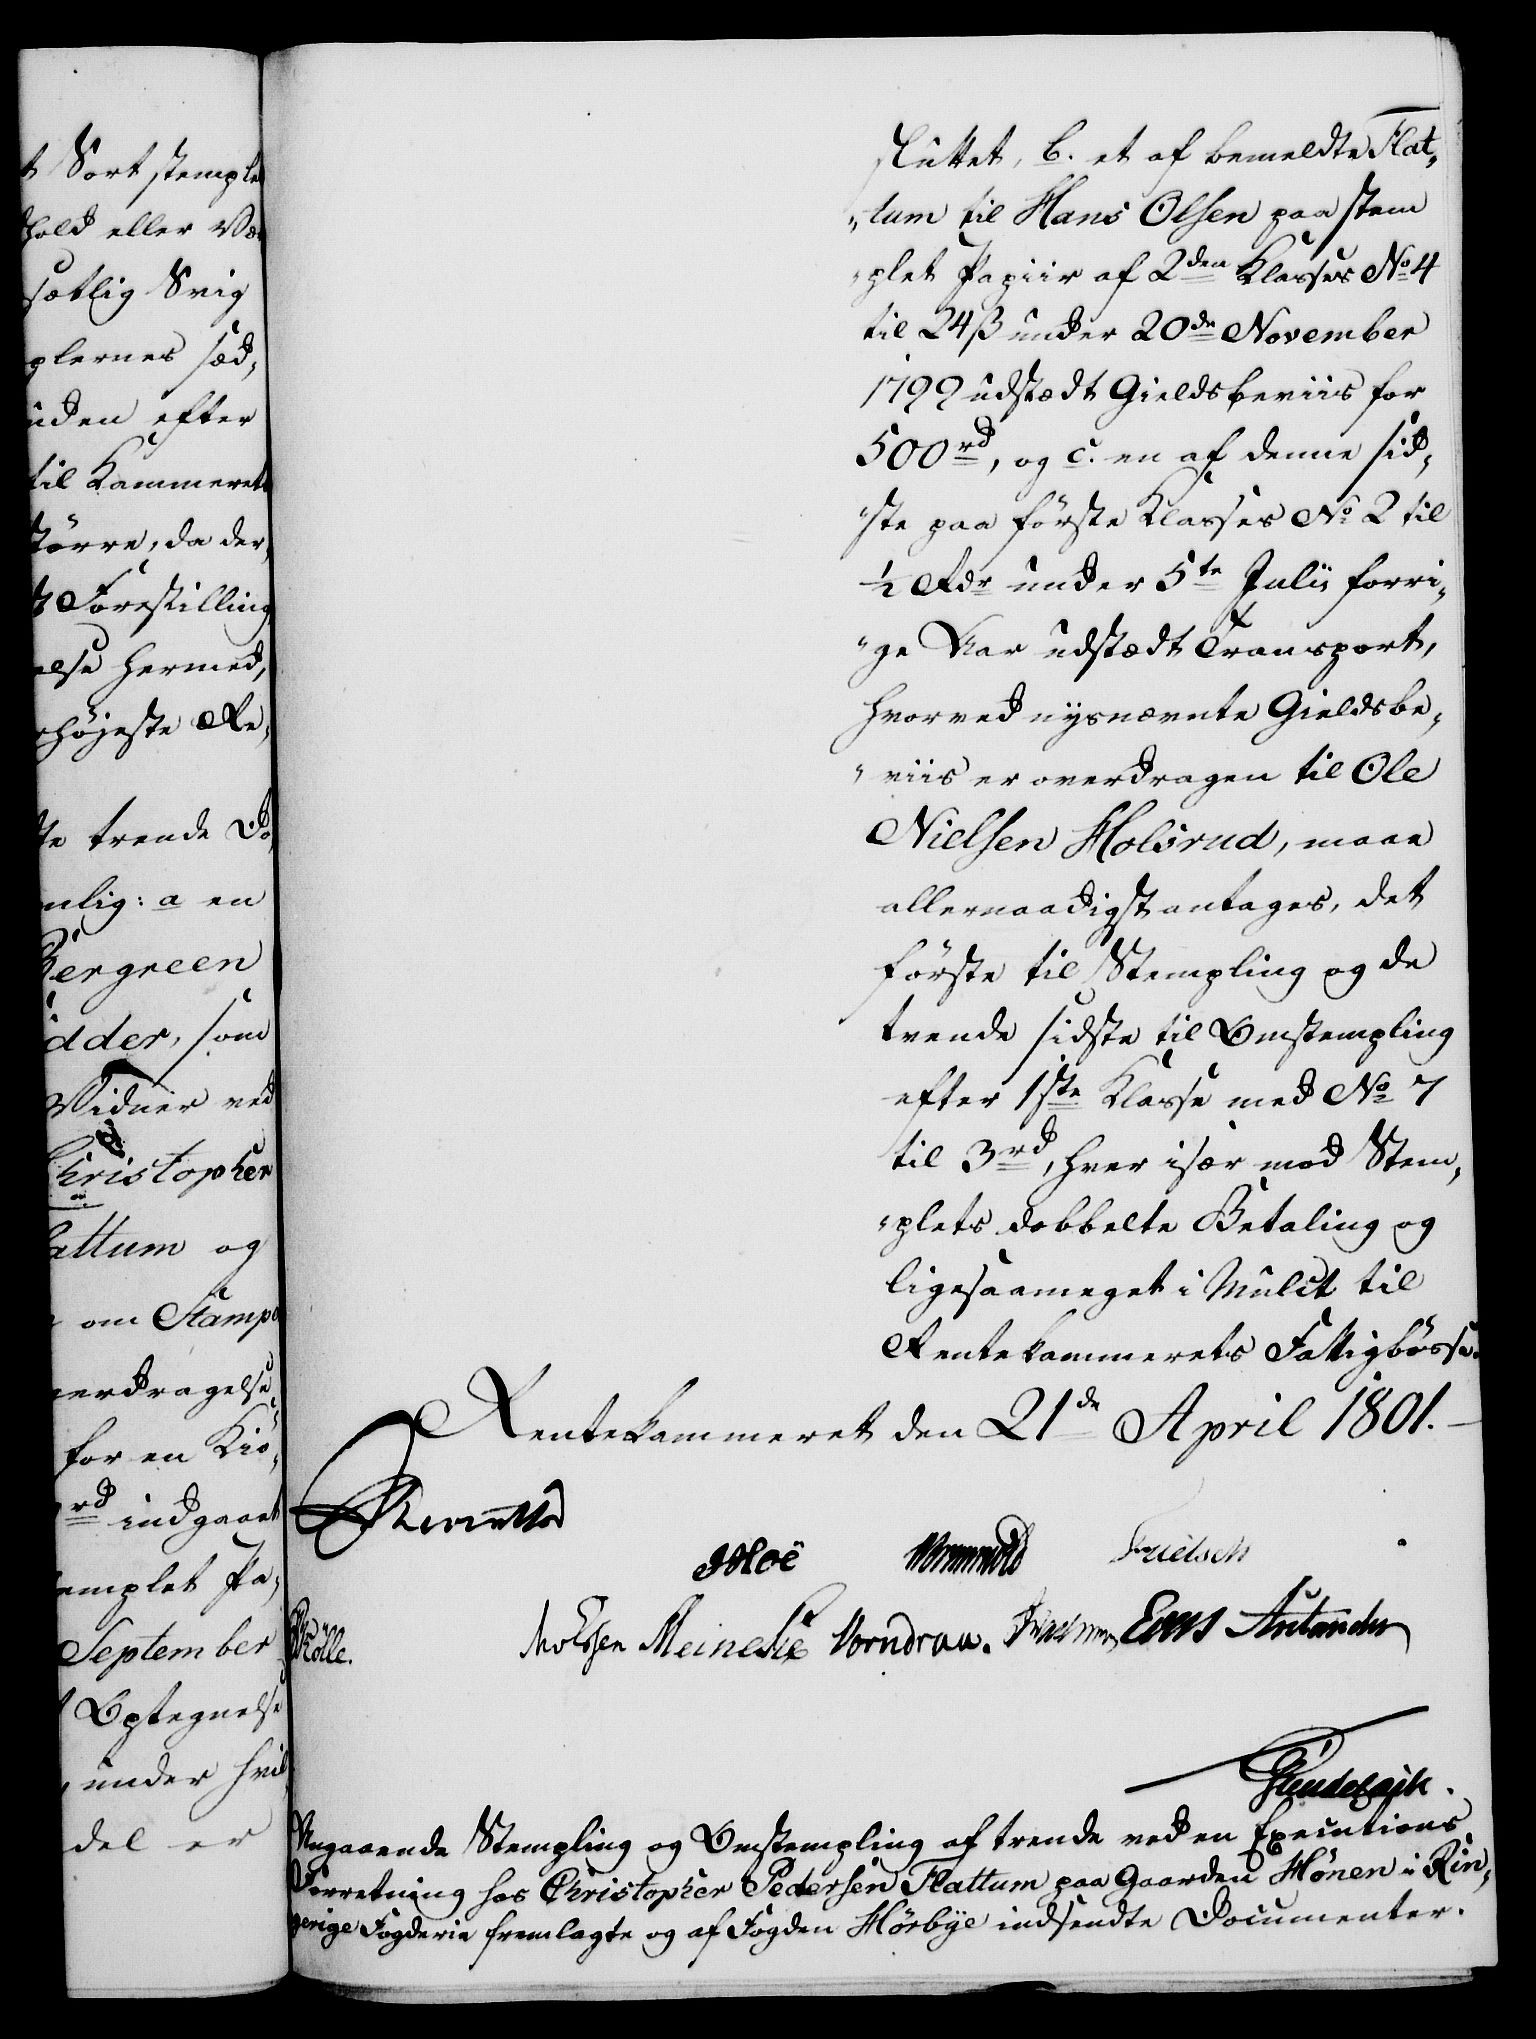 t Sort stemple
hold eller Væ
sætlig Svig
glernes sæd,
uden efter
til Kammerets
större, da der,
Forestilling
else hermed,
höjeste Re,
te trende Do
nlig: a en
Bergreen
idder, som
Vidner ved
Christopher
attum og
om Stamp
erdragelse
for en Kiö,
rd indgaaet
emplet Pa,
September
Optegnelse
, under hvil
del er
sluttet, b. et af bemeldte Flat,
„tum til Hans Olsen paa stem
„plet Papiir af 2den Klasses No 4
til 24 ß under 20de November
1799 udstædt Gieldsbeviis for
500 rd, og c. en af denne sid,
„ste paa förste Klasses No 2 til
½ Rdr under 5te Julii forri,
„ge Aar udstædt Transport,
hvorved nysnævnte Gieldsbe,
„viis er overdragen til Ole
Nielsen Holsrud, maae
allernaadigst antages, det
förste til Stempling og de
tvende sidste til Omstempling
efter 1ste Klasse med No 7
til 3 rd, hver især mod Stem,
„plets dobbelte Betaling og
ligesaameget i Mulct til
Rentekammerets Fattigbösse.
Rentekammeret den 21de April 1801. –
Reventlow
JHoë Wormskiold Frielsch
Kölle. Molssen Meinesie Vorndran. Eens
Rendelajk.
Angaaende Stempling og Omstempling af trende ved en Executions
Forretning hos Christopher Pedersen Flattum paa Gaarden Hönen i Rin,
gerige Fogderie fremlagte og af Fogden Hörbye indsendte Documenter.